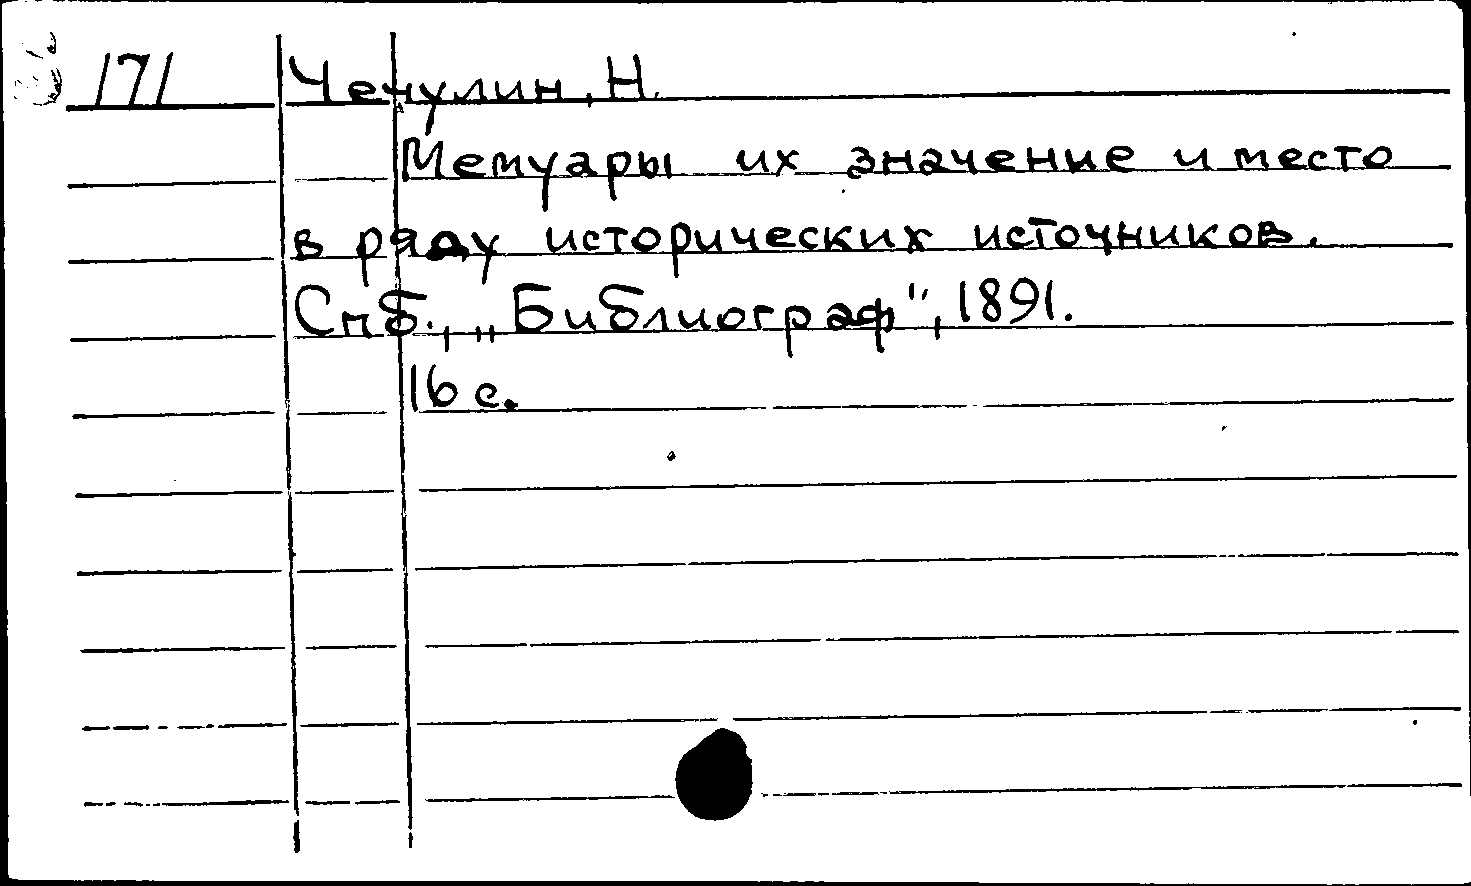 171 Чечулин, Н.
Мемуары их значение и место
в ряду исторических источников.
Спб., „Библиограф", 1891.
16 с.